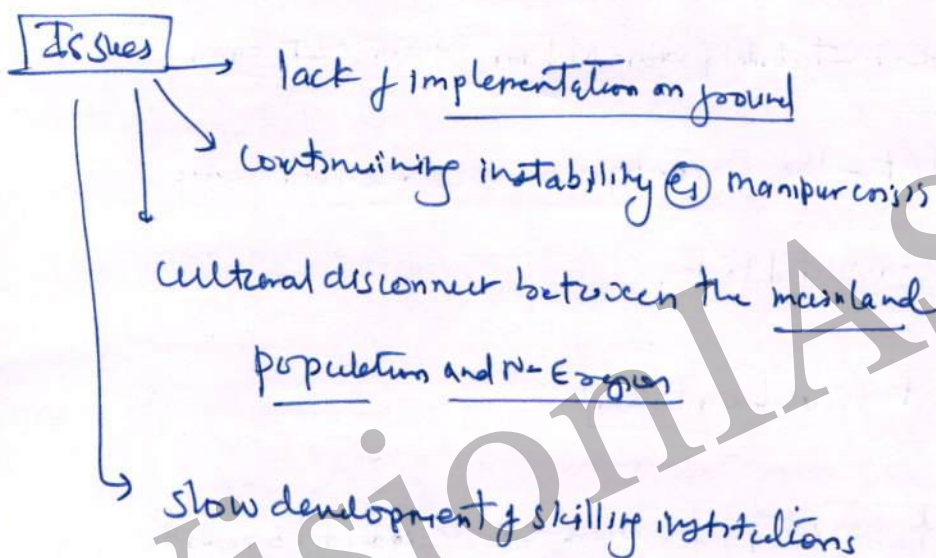 Issues
lack of implementation on ground
continuining instability eg manipur crisis
cultural disconnect between the mainland
population and N-E region
slow development of skilling institutions
VisionIAS